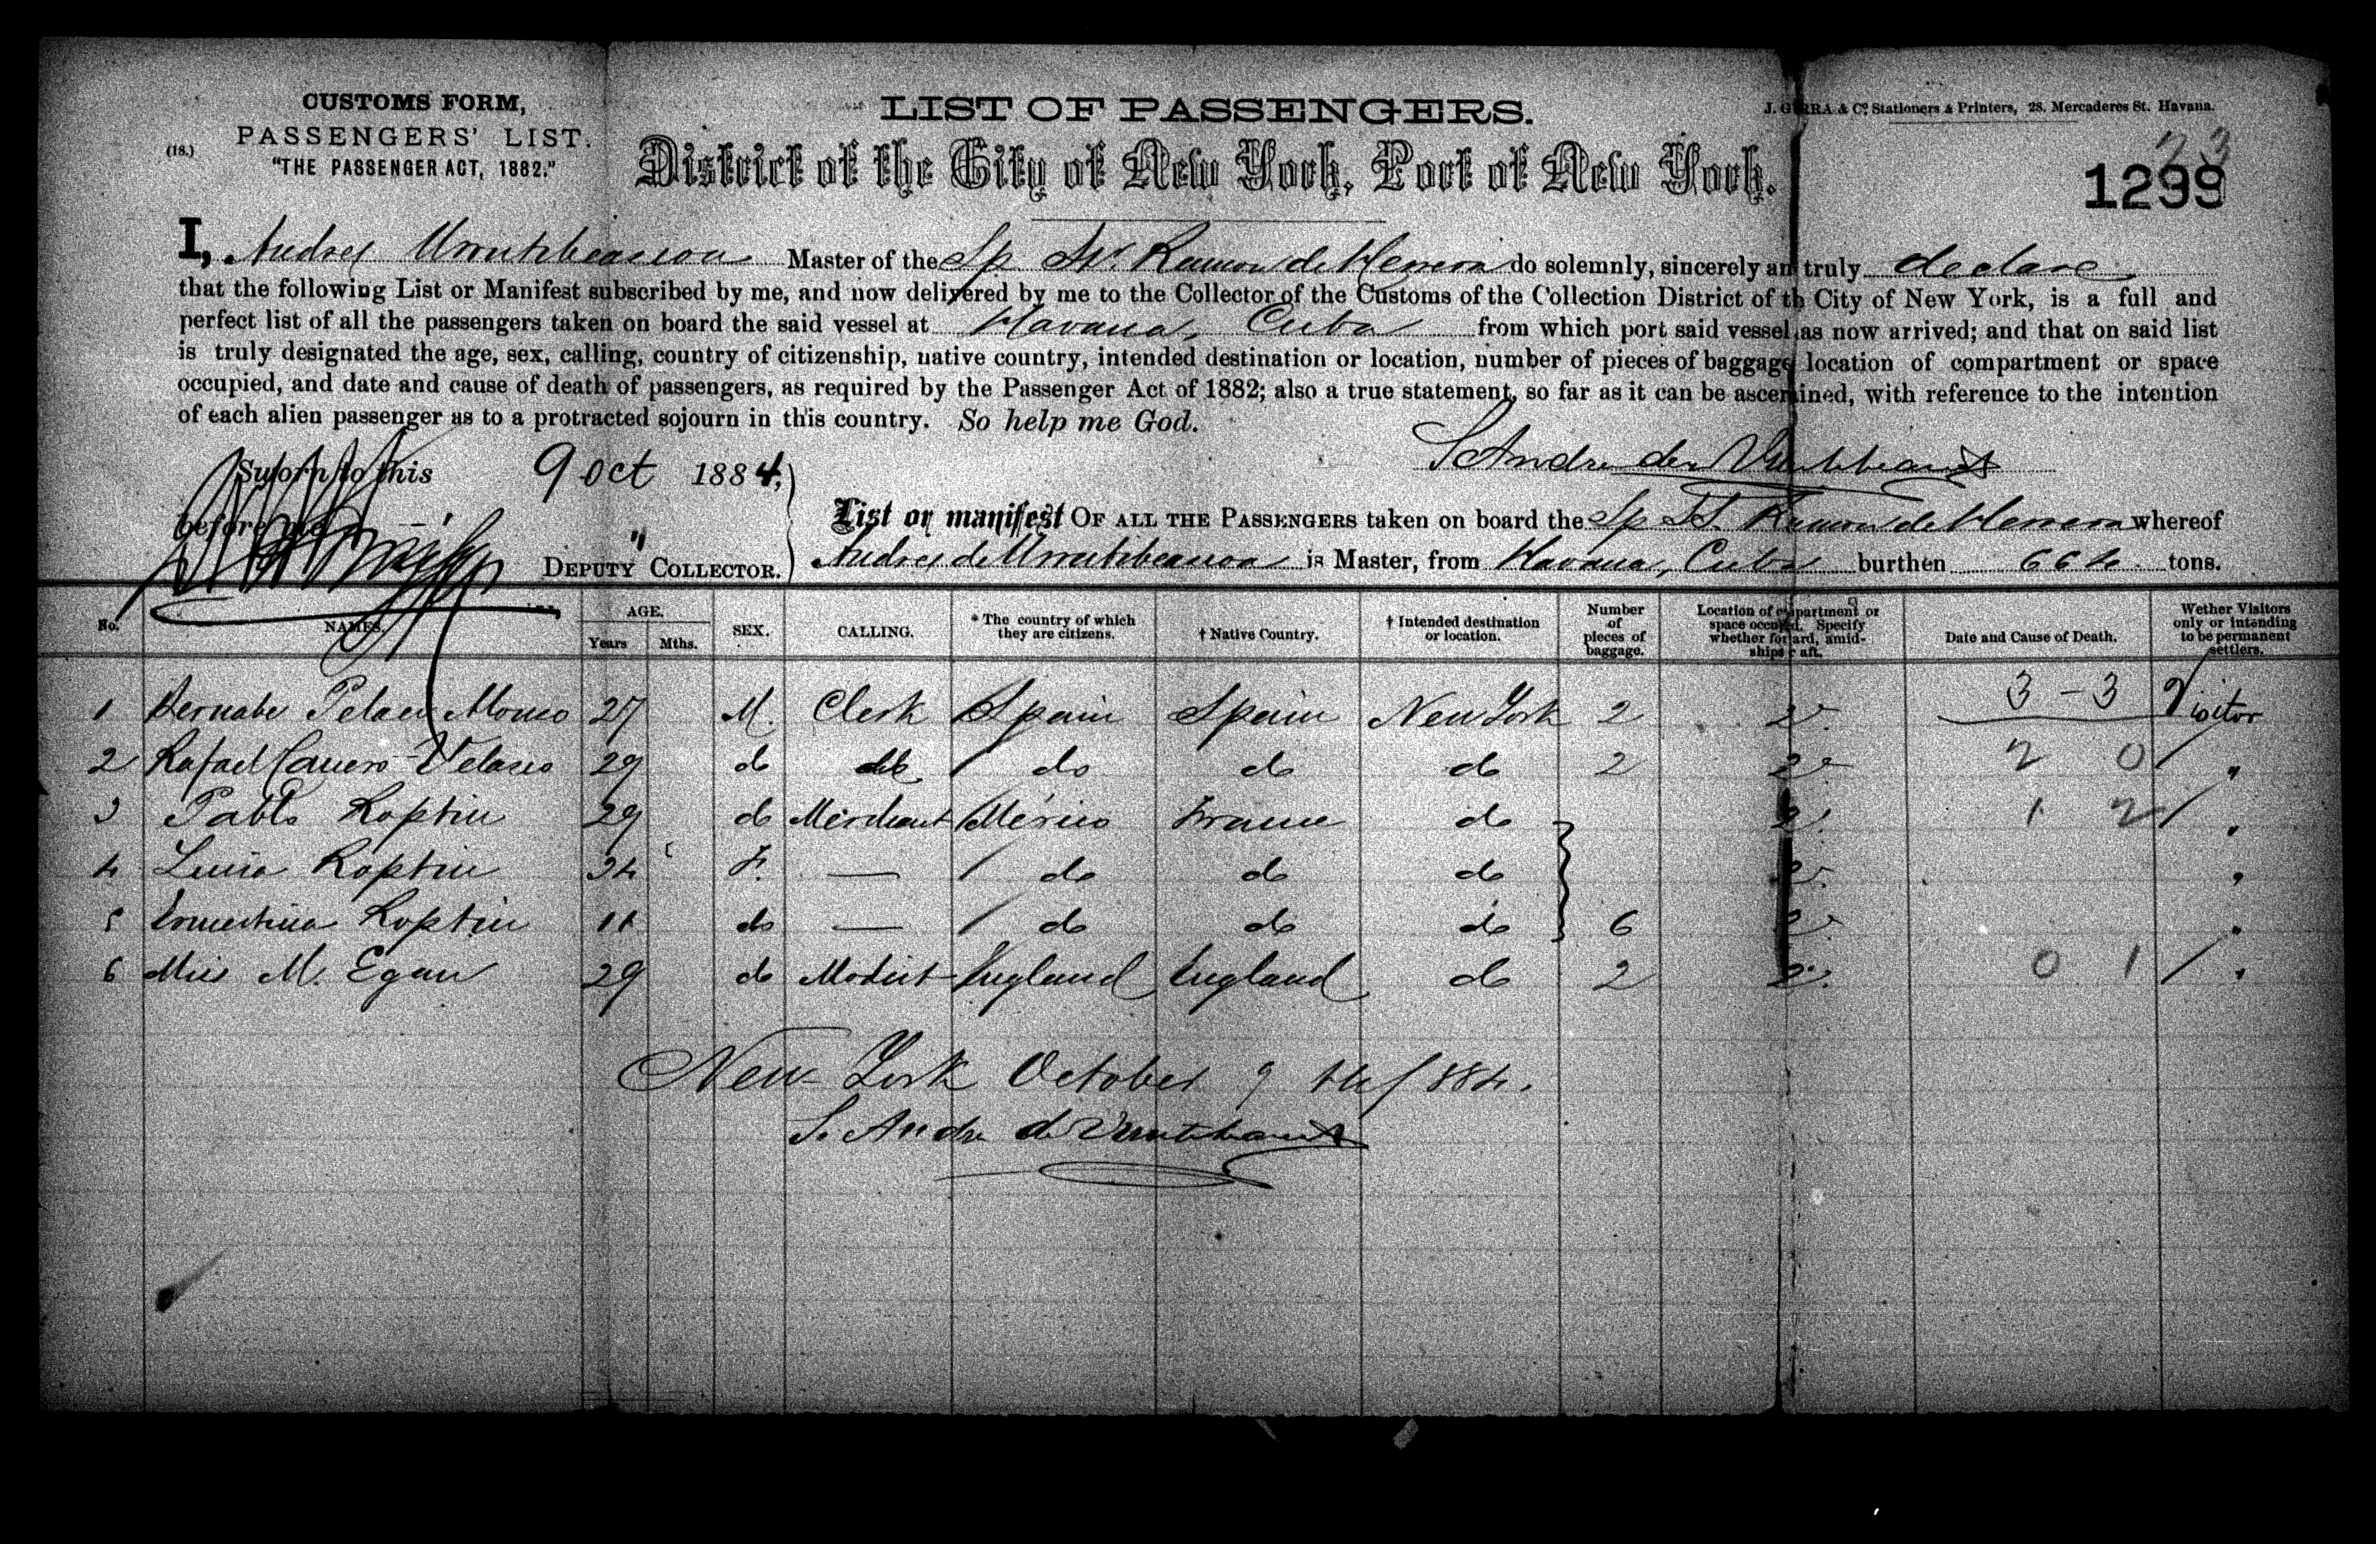 CUSTOMS FORM,
PASSENGERS' LIST.
(18.)
"THE PASSENGER ACT, 1882."
LIST OF PASSENGERS.
District of the City of New York, Port of New York.
J. GUERRA & Cº Stationers & Printers, 28. Mercaderes St. Havana.
23
1299
I, Andres Master of the Sp Str Ramon de Herrera do solemnly, sincerely an truly declare
that the following List or Manifest subscribed by me, and now delivered by me to the Collector of the Customs of the Collection District of th City of New York, is a full and
perfect list of all the passengers taken on board the said vessel at Havana, Cuba from which port said vessel as now arrived; and that on said list
is truly designated the age, sex, calling, country of citizenship, native country, intended destination or location, number of pieces of baggage location of compartment or space
occupied, and date and cause of death of passengers, as required by the Passenger Act of 1882; also a true statement, so far as it can be ascer ined, with reference to the intention
of each alien passenger as to a protracted sojourn in this country. So help me God.
Sworn to this 9 oct 1884,
before me
" DEPUTY COLLECTOR.
List or manifest OF ALL THE PASSENGERS taken on board the Sp St. Ramon de Herrera whereof
Andres de is Master, from Havana, Cuba burthen 664 tons.
No. NAMES. AGE. Years Mths. SEX. CALLING. * The country of which they are citizens. † Native Country. † Intended destination or location. Number of pieces of baggage. Location of compartment or space occupied. Specify whether forward, amidships or aft. Date and Cause of Death. Wether Visitors only or intending to be permanent settlers.
1 Bernabe Pelaez Alonso 27 M. Clerk Spain Spain New York 2 2ª 3 - 3 Visitor
2 Rafael Velasco 29 do do / do do do 2 2ª 2 0 / "
3 Pablo Koptiu 29 do Merchant / Mexico France do 2ª 1 2 / "
4 Luisa Koptiu 24 F. — / do do do 2ª "
5 Ernestina Koptiu 11 do — / do do do 6 2ª "
6 Miss M. Egan 29 do Modist England England do 2 2ª 0 1 / "
New York October 9 th/884.
S. Andres de